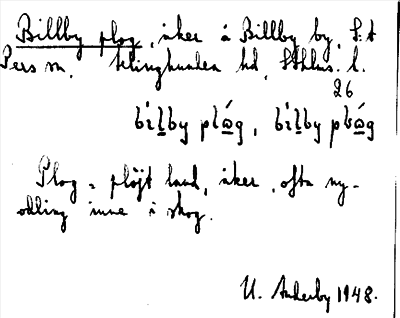 Billby plog, åker å Billby by, S:t
Pers sn, Ærlinghundra hd, Sthlms. l.
26
bìlby plώ̨g, bìlby plώ̨g
Plog = plöjt land, åker, ofta ny-
odling inne i skog.
U. Anderby 1948.